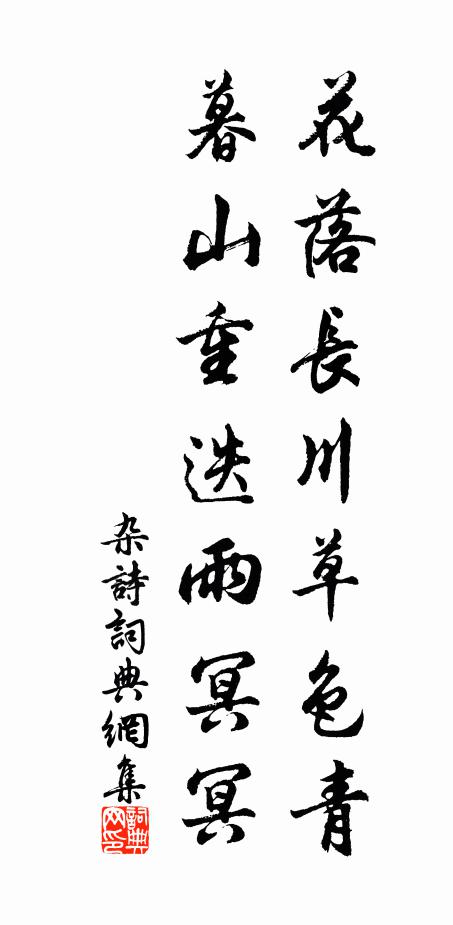 花落長川草色青
暮山重迭雨冥冥
杂詩詞典網集
詞典网印